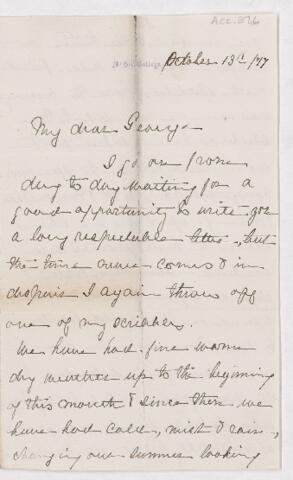 Acc. 876
McGill College.
October 13th /77
My dear George
I go on from
day to day waiting for a
good opportunity to write you
a long respectable letter, but
the time never comes & in
despair I again throw off
one of my scribbles.
We have had fine warm
dry weather up to the beginning
of this month & since then we
have had cold, mist & rain,
changing our summer looking